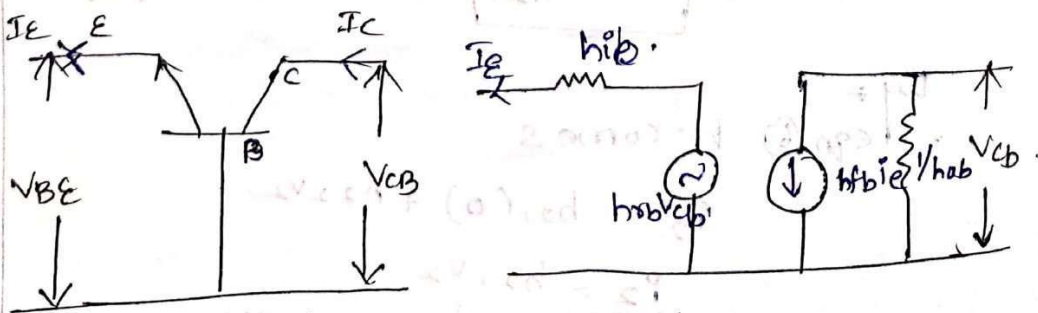 IE E IC
C
B
VBE VCB
IE hib.
hrbVcb'
hfbie 1/hob Vcb.